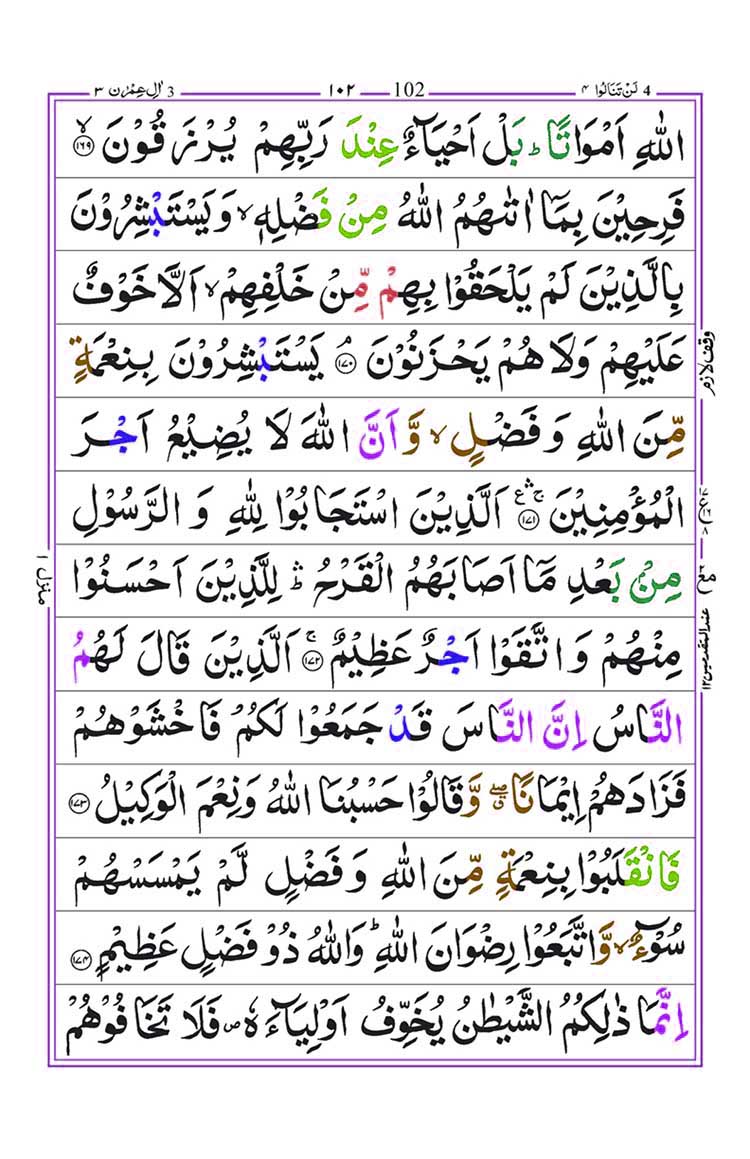 4 لَنْ تَنَالُوا ٤ 102 ١٠٢ 3 اٰلِ عِمْرٰن ٣
اللّٰهِ اَمْوَاتًا ؕ بَلْ اَحْيَآءٌ عِنْدَ رَبِّهِمْ يُرْزَقُوْنَ ۙ‏﴿۱۶۹﴾
فَرِحِيْنَ بِمَاۤ اٰتٰٮهُمُ اللّٰهُ مِنْ فَضْلِهٖ ۙ وَيَسْتَبْشِرُوْنَ
بِالَّذِيْنَ لَمْ يَلْحَقُوْا بِهِمْ مِّنْ خَلْفِهِمْ ۙ اَلَّا خَوْفٌ
عَلَيْهِمْ وَلَا هُمْ يَحْزَنُوْنَ ۘ‏﴿۱۷۰﴾ يَسْتَبْشِرُوْنَ بِنِعْمَةٍ
مِّنَ اللّٰهِ وَفَضْلٍ ۙ وَّاَنَّ اللّٰهَ لَا يُضِيْعُ اَجْرَ
الْمُؤْمِنِيْنَ ۛۚ ع ‏﴿۱۷۱﴾ اَلَّذِيْنَ اسْتَجَابُوْا لِلّٰهِ وَالرَّسُوْلِ
مِنْۢ بَعْدِ مَاۤ اَصَابَهُمُ الْقَرْحُ ۛؕ لِلَّذِيْنَ اَحْسَنُوْا
مِنْهُمْ وَاتَّقَوْا اَجْرٌ عَظِيْمٌ ۚ‏﴿۱۷۲﴾ اَلَّذِيْنَ قَالَ لَهُمُ
النَّاسُ اِنَّ النَّاسَ قَدْ جَمَعُوْا لَكُمْ فَاخْشَوْهُمْ
فَزَادَهُمْ اِيْمَانًا ۖۗ وَّقَالُوْا حَسْبُنَا اللّٰهُ وَنِعْمَ الْوَكِيْلُ ﴿۱۷۳﴾
فَانْقَلَبُوْا بِنِعْمَةٍ مِّنَ اللّٰهِ وَفَضْلٍ لَّمْ يَمْسَسْهُمْ
سُوْٓءٌ ۙ وَّاتَّبَعُوْا رِضْوَانَ اللّٰهِ ؕ وَاللّٰهُ ذُوْ فَضْلٍ عَظِيْمٍ ﴿۱۷۴﴾
اِنَّمَا ذٰلِكُمُ الشَّيْطٰنُ يُخَوِّفُ اَوْلِيَآءَهٗ ۖ فَلَا تَخَافُوْهُمْ
وقف لازم
عند المتقدمین ١٢
منزل ١